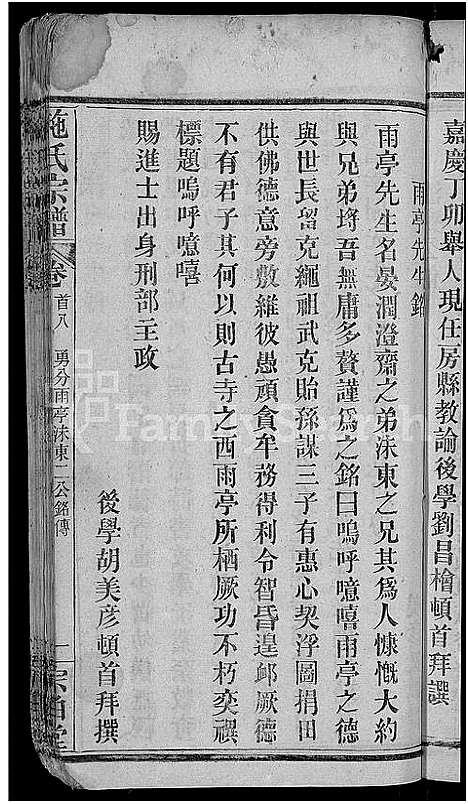 嘉慶丁卯舉人現任房縣教諭後學劉昌檜頓首拜譔
雨亭先生銘
雨亭先生名晏潤澄齋之弟洙東之兄其爲人慷慨大約
與兄弟埒吾無庸多贅謹爲之銘曰嗚呼噫嘻雨亭之德
與世長留克繩祖武克貽孫謀三子有惠心契浮圖捐田
供佛德意旁敷維彼愚頑貪牟務得利令智昏遑郵厥德
不有君子其何以則古寺之西雨亭所栖厥功不朽奕禩
標題嗚呼噫嘻
賜進士出身刑部主政
後學胡美彦頓首拜撰
施氏宗譜 卷首八 勇分雨亭洙東二公銘傳 一
FamilySearch